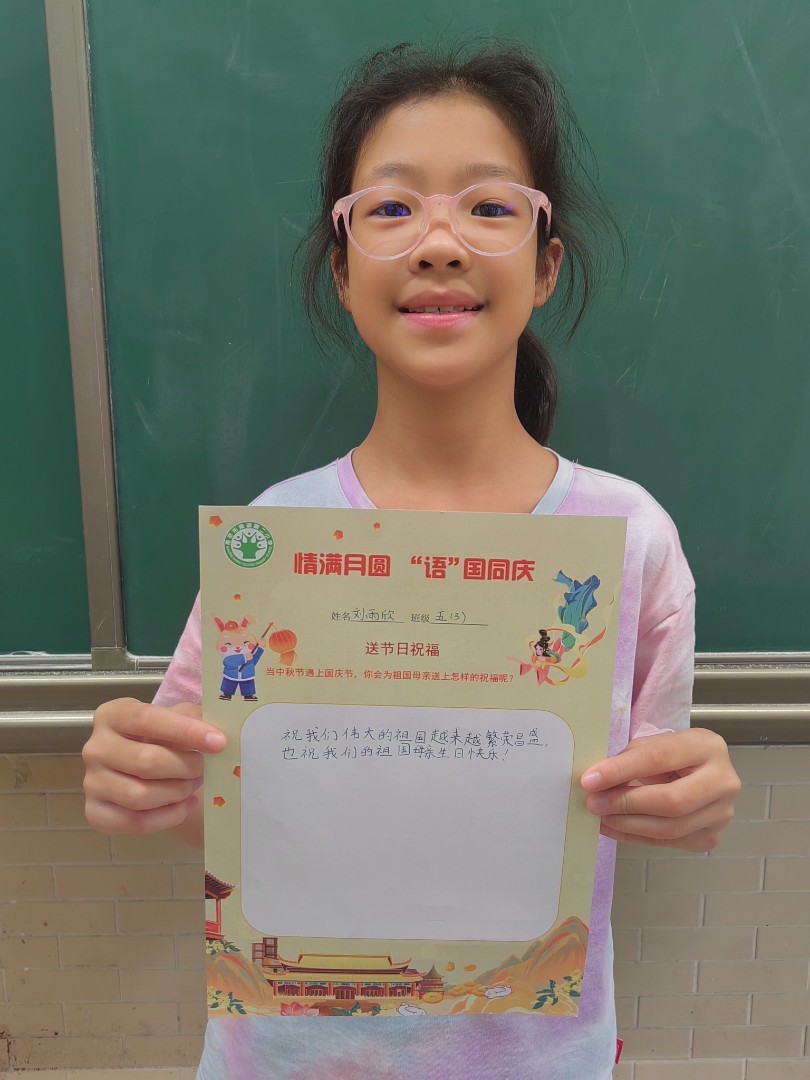 情满月圆 “语”国同庆
姓名 刘雨欣 班级 五(3)
送节日祝福
当中秋节遇上国庆节，你会为祖国母亲送上怎样的祝福呢？
祝我们伟大的祖国越来越繁荣昌盛，
也祝我们的祖国母亲生日快乐！